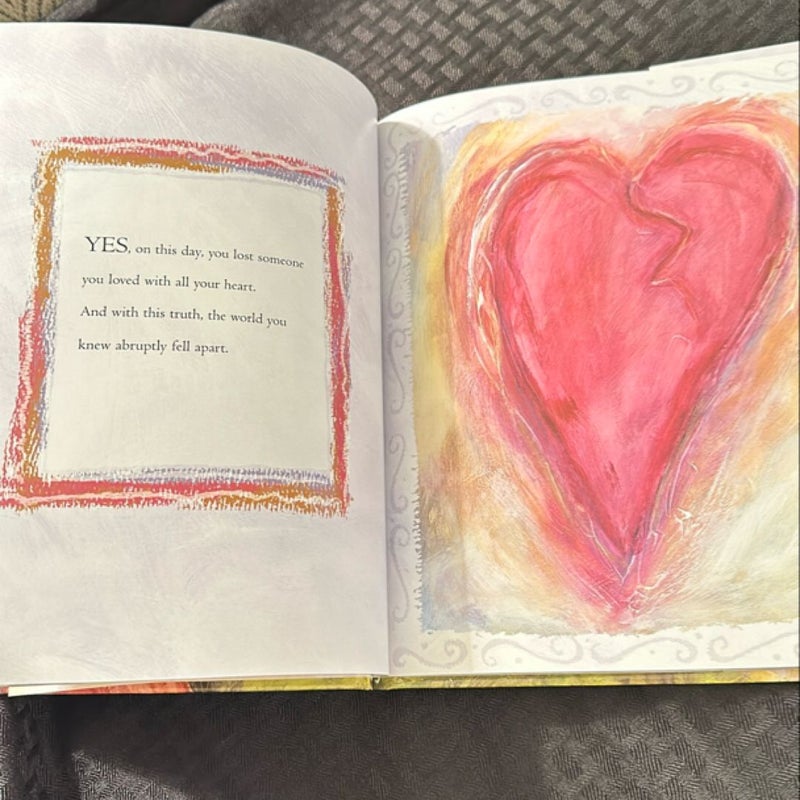 YES, on this day, you lost someone
you loved with all your heart.
And with this truth, the world you
knew abruptly fell apart.